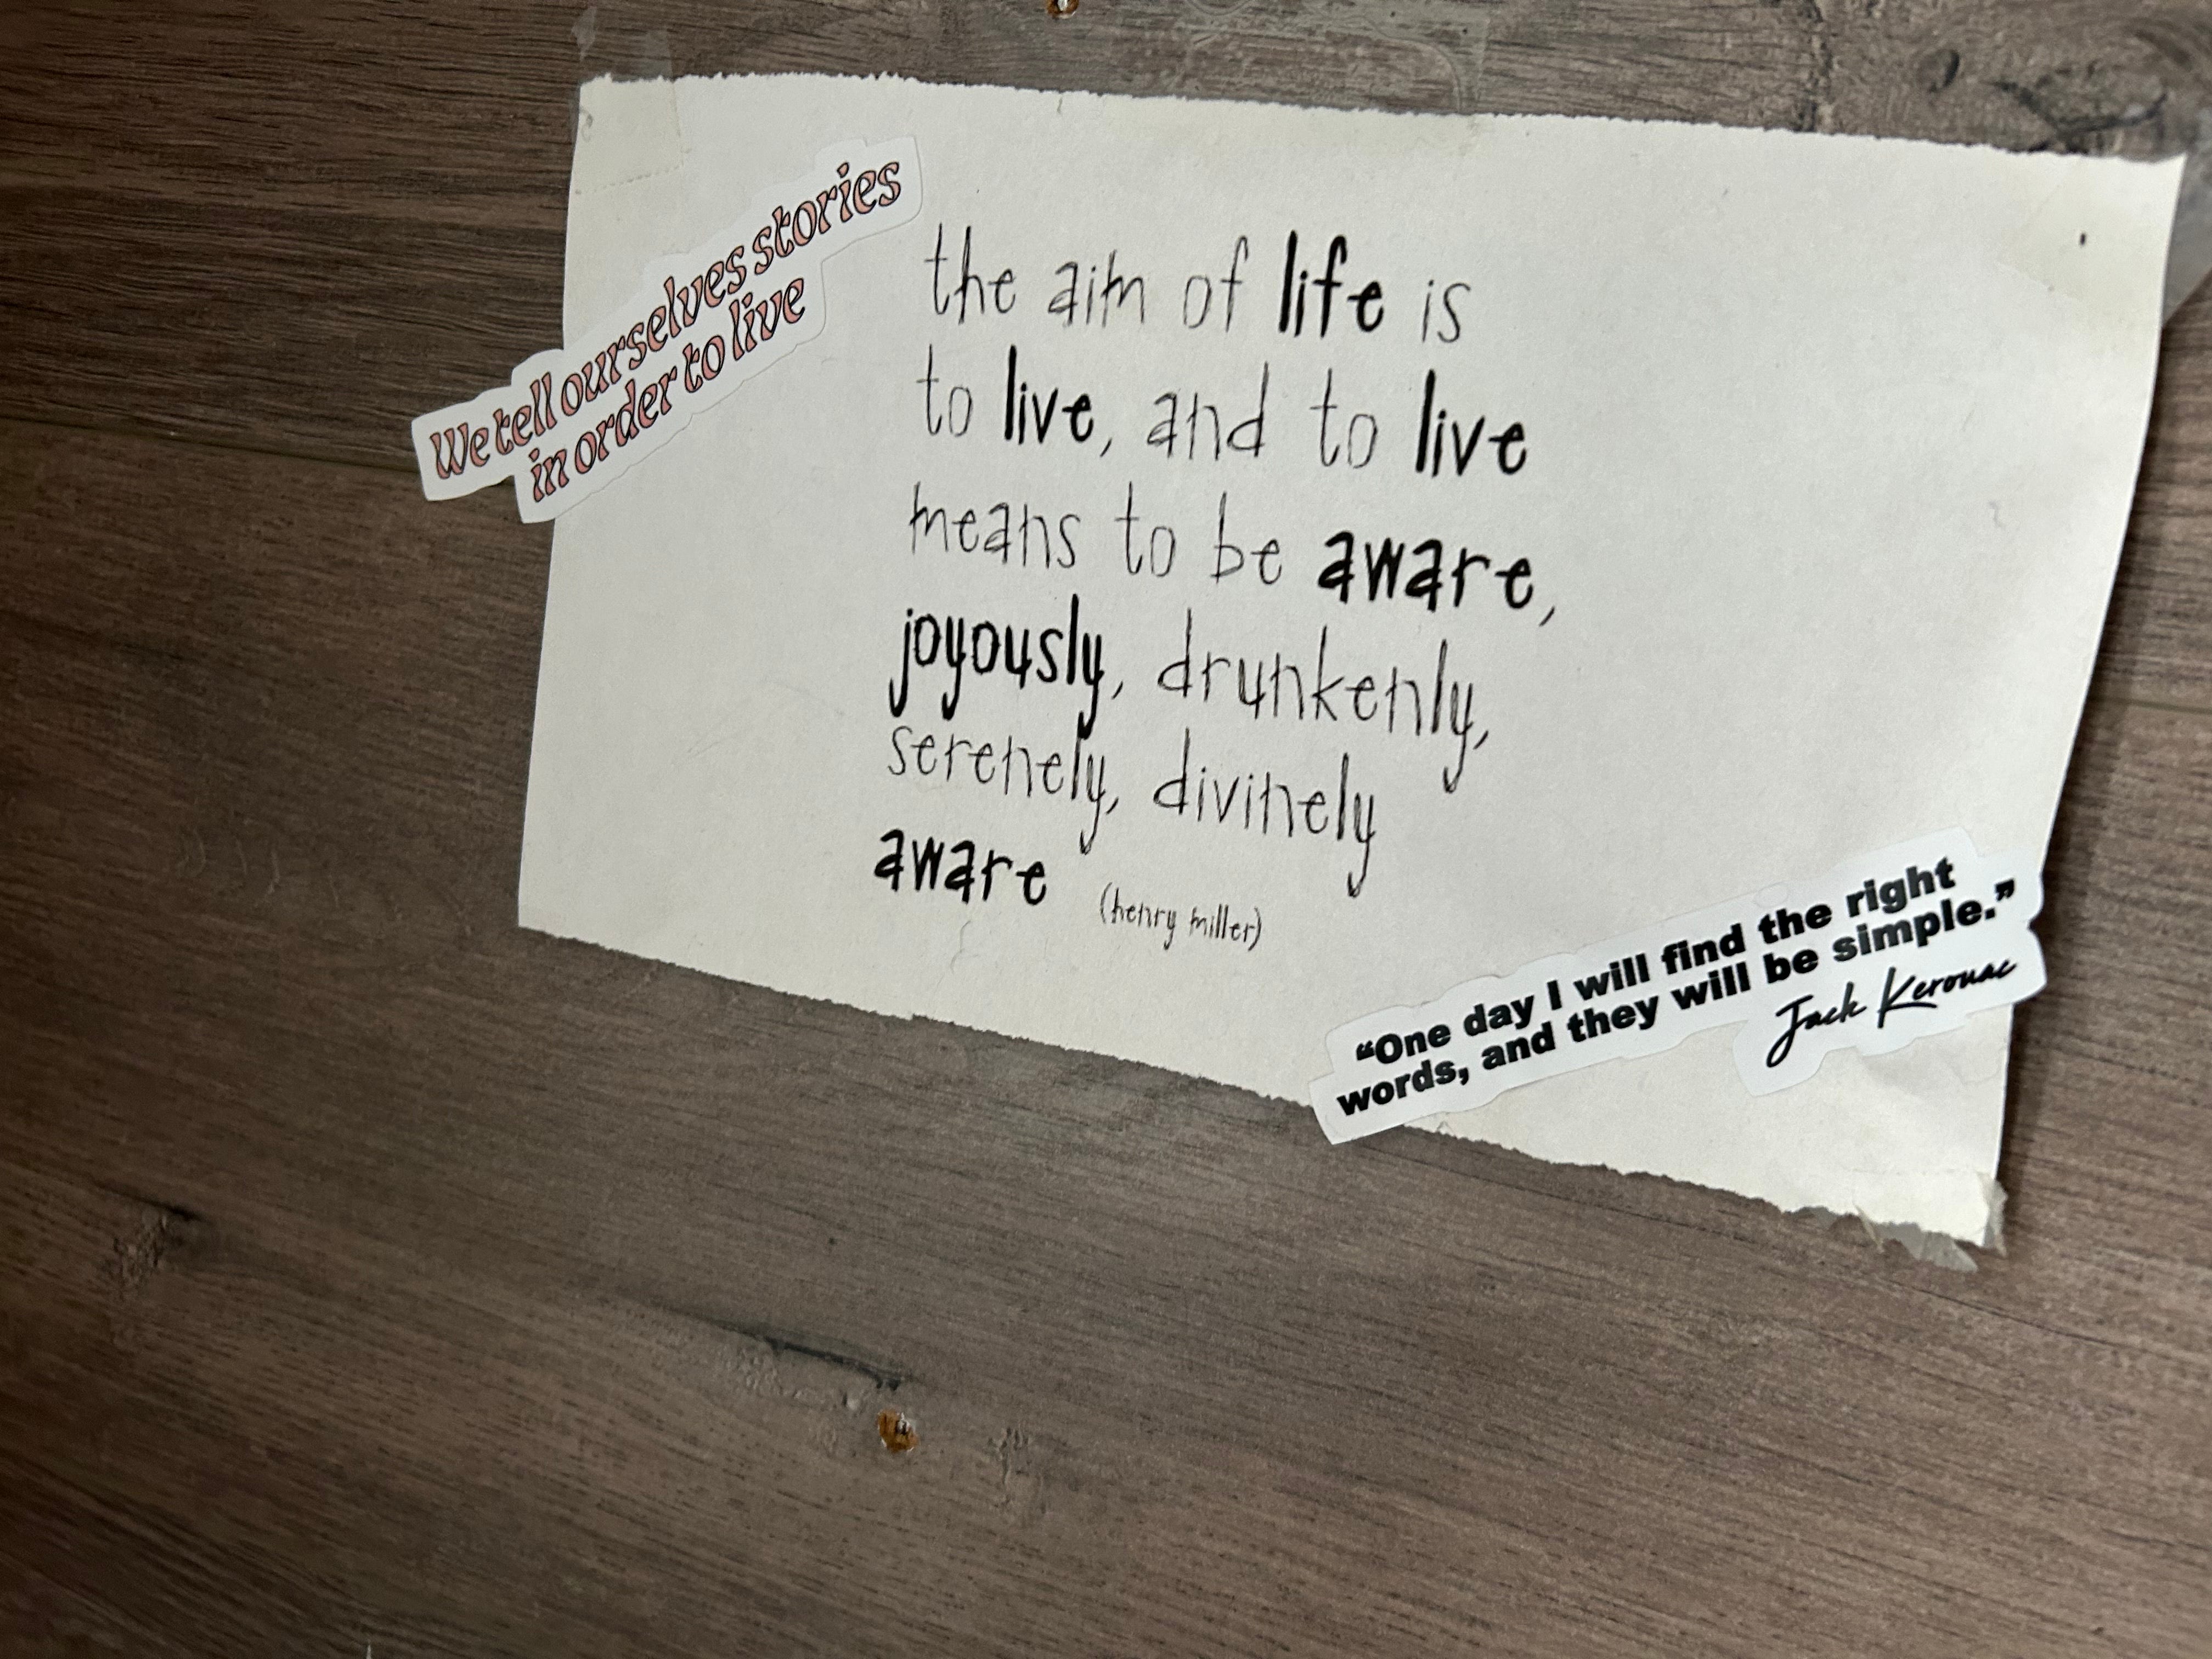 We tell ourselves stories
in order to live
the aim of life is
to live, and to live
means to be aware,
joyously, drunkenly,
serenely, divinely
aware
(henry miller)
“One day I will find the right
words, and they will be simple.”
Jack Kerouac